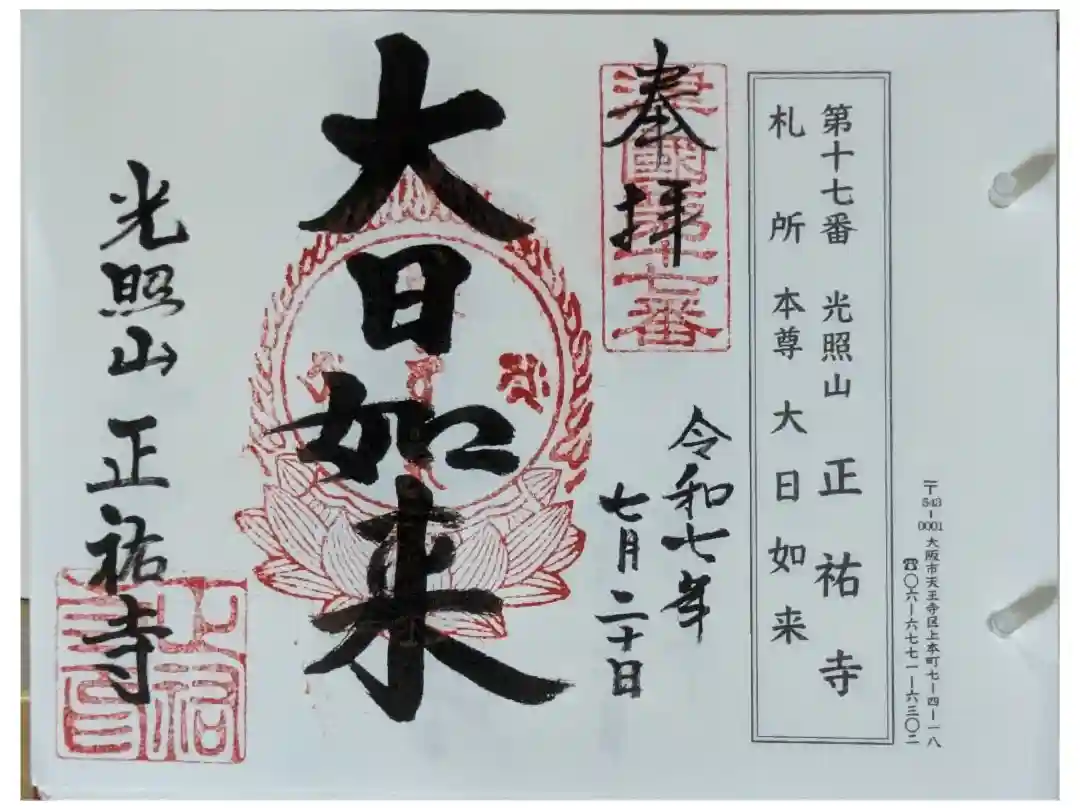 〒543-0001 大阪市天王寺区上本町七ー四ー一八
☎〇六ー六七七一ー六三〇二
第十七番 光照山 正祐寺
札所本尊大日如来
津國第十七番
奉拝
令和七年
七月二十日
大日如来
光照山 正祐寺
正祐
寺印